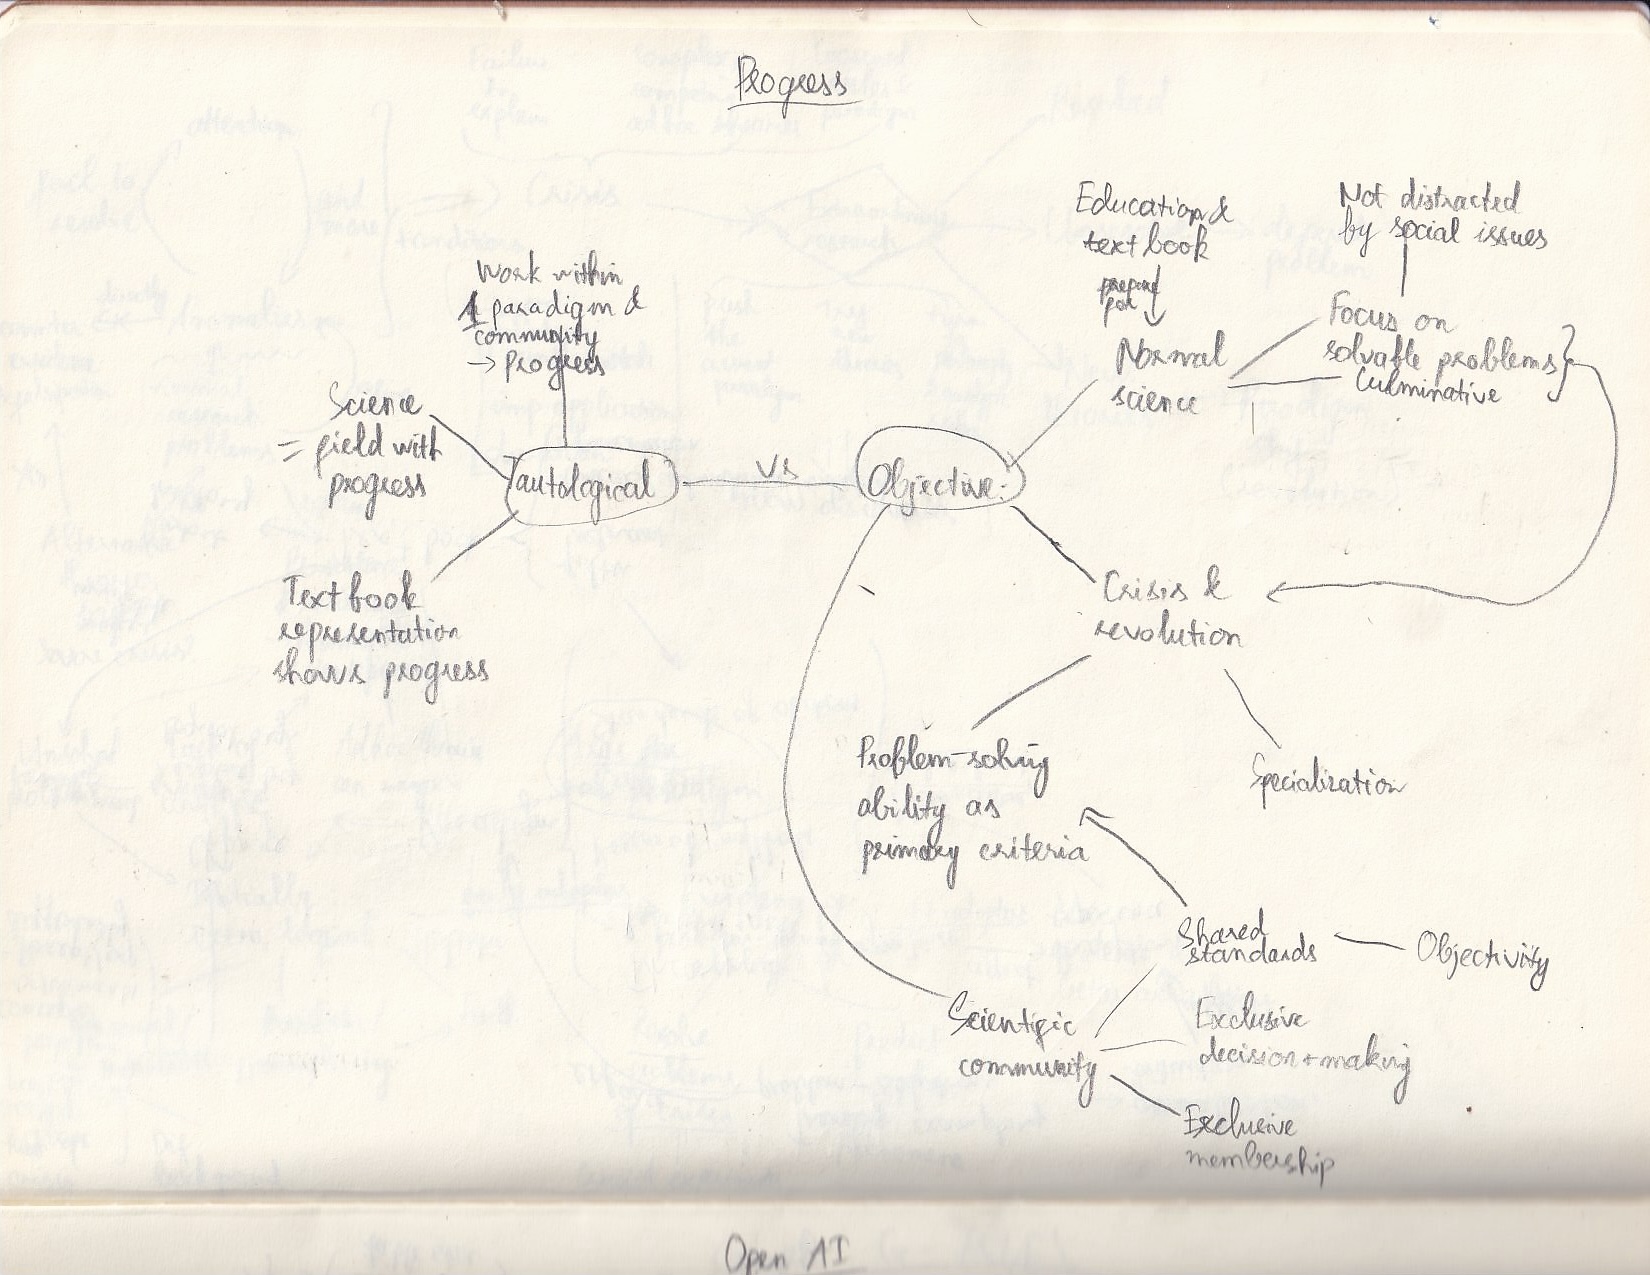 Progress
Work within
1 paradigm &
community
→ Progress
Science
= field with
progress
Textbook
representation
shows progress
autological
vs
Objective
Education &
textbook
Normal
science
Not distracted
by social issues
Focus on
solvable problems
Culminative
Crisis &
revolution
Problem-solving
ability as
primary criteria
Specialization
Shared
standards
Objectivity
Scientific
community
Exclusive
decision-making
Exclusive
membership
Open AI